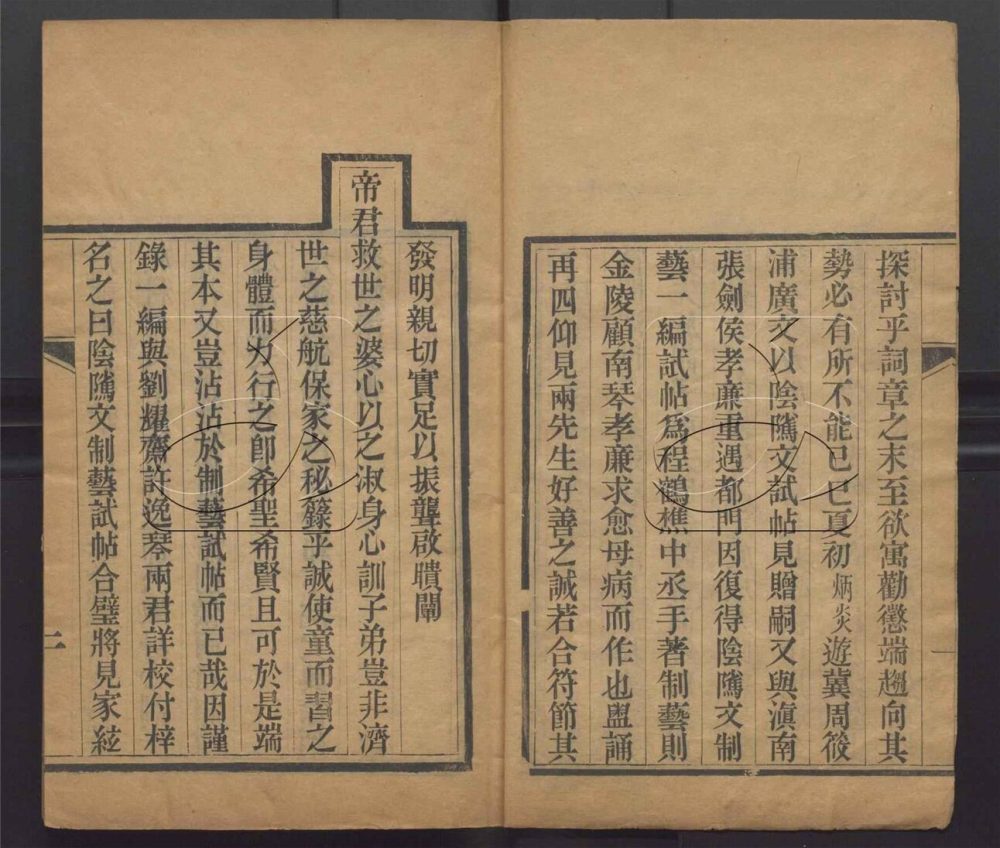 探討乎詞章之末至欲寓勸懲端趨向其
勢必有所不能己巳夏初炳炎遊冀周筱
浦廣文以陰隲文試帖見贈嗣又與滇南
張劍侯孝廉重遇都門因復得陰隲文制
藝一編試帖爲程鶴樵中丞手著制藝則
金陵顧南琴孝廉求愈母病而作也盥誦
再四仰見兩先生好善之誠若合符節其
發明親切實足以振聾啟聵闡
帝君救世之婆心以之淑身心訓子弟豈非濟
世之慈航保家之秘籙乎誠使童而習之
身體而力行之卽希聖希賢且可於是端
其本又豈沾沾於制藝試帖而已哉因謹
錄一編與劉耀齋許逸琴兩君詳校付梓
名之曰陰隲文制藝試帖合璧將見家絃
二